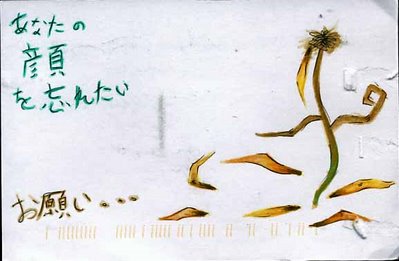 あなたの
顔
を忘れたい
お願い・・・